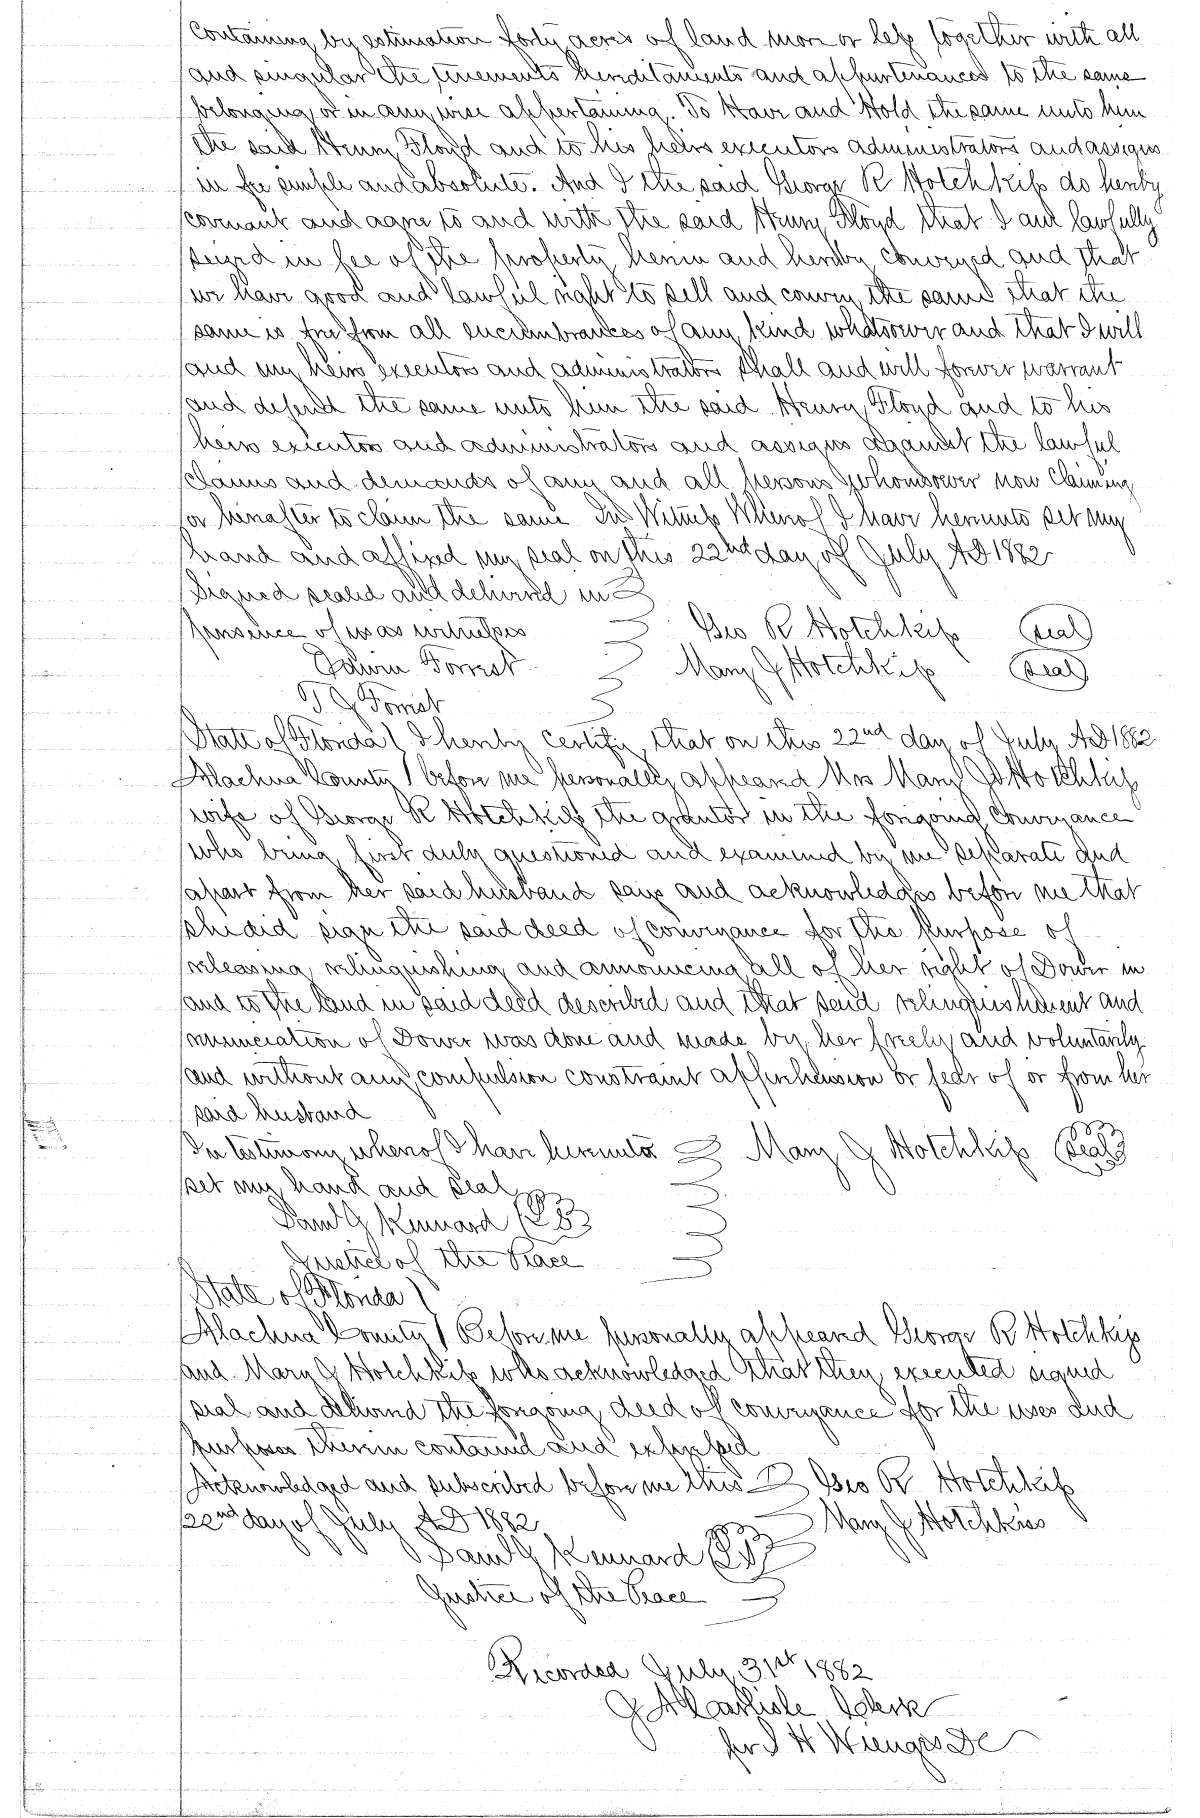 containing by estimation forty acres of land more or less together with all
and singular the tenements hereditaments and appurtenances to the same
belonging or in any wise appertaining. To Have and Hold the same unto him
the said Henry Floyd and to his heirs executors administrators and assigns
in fee simple and absolute. And I the said George R Hotchkiss do hereby
covenant and agree to and with the said Henry Floyd that I am lawfully
seized in fee of the property herein and hereby conveyed and that
we have good and lawful right to sell and convey the same that the
same is free from all encumbrances of any kind whatsoever and that I will
and my heirs executors and administrators shall and will forever warrant
and defend the same unto him the said Henry Floyd and to his
heirs executors and administrators and assigns against the lawful
claims and demands of any and all persons whomsoever now Claiming
or hereafter to claim the same In Witness Whereof I have hereunto set my
hand and affixed my seal on this 22nd day of July AD 1882
Signed sealed and delivered in
presence of us as witnesses Geo R Hotchkiss (seal)
Edwin Forrest Mary J Hotchkiss (seal)
T J Forrest
State of Florida ) I hereby certify that on this 22nd day of July AD 1882
Alachua County ) before me personally appeared Mrs Mary J Hotchkiss
wife of George R Hotchkiss the grantor in the foregoing Conveyance
who being first duly questioned and examined by me separate and
apart from her said husband says and acknowledges before me that
she did sign the said deed of conveyance for the Purpose of
releasing relinquishing and announcing all of her right of Dower in
and to the land in said deed described and that said relinquishment and
renunciation of Dower was done and made by her freely and voluntarily
and without any compulsion constraint apprehension or fear of or from her
said husband
In testimony whereof I have hereunto Mary J Hotchkiss (Seal)
set my hand and seal
Saml J Kennard (LS)
Justice of the Peace
State of Florida )
Alachua County ) Before me personally appeared George R Hotchkiss
and Mary J Hotchkiss who acknowledged that they executed signed
seal and delivered the foregoing deed of conveyance for the uses and
purposes therein contained and expressed
Acknowledged and subscribed before me this Geo R Hotchkiss
22nd day of July AD 1882 Mary J Hotchkiss
Saml J Kennard (LS)
Justice of the Peace
Recorded July 31st 1882
J A Carlisle Clerk
per I H Wienges DC